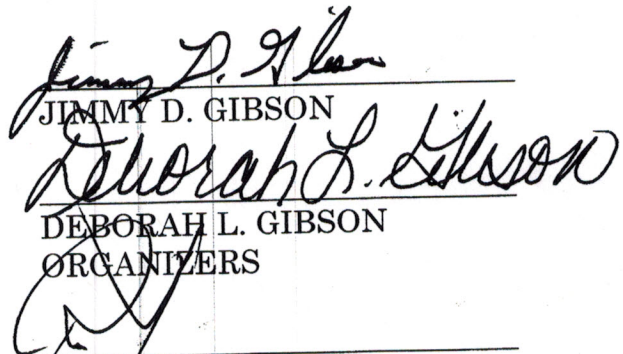 Jimmy D. Gibson
JIMMY D. GIBSON
Deborah L. Gibson
DEBORAH L. GIBSON
ORGANIZERS